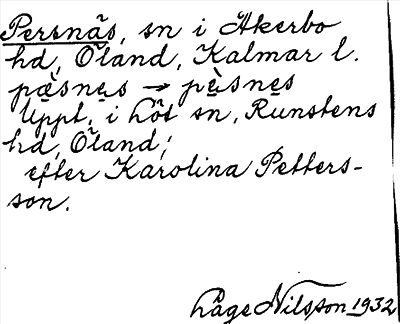 Persnäs, sn i Åkerbo
hd, Öland, Kalmar l.
pæ̀snẹs → pę̀snẹs
Uppt. i Löt sn, Runstens
hd, Öland;
efter Karolina Petters-
son.
Låge Nilsson 1932